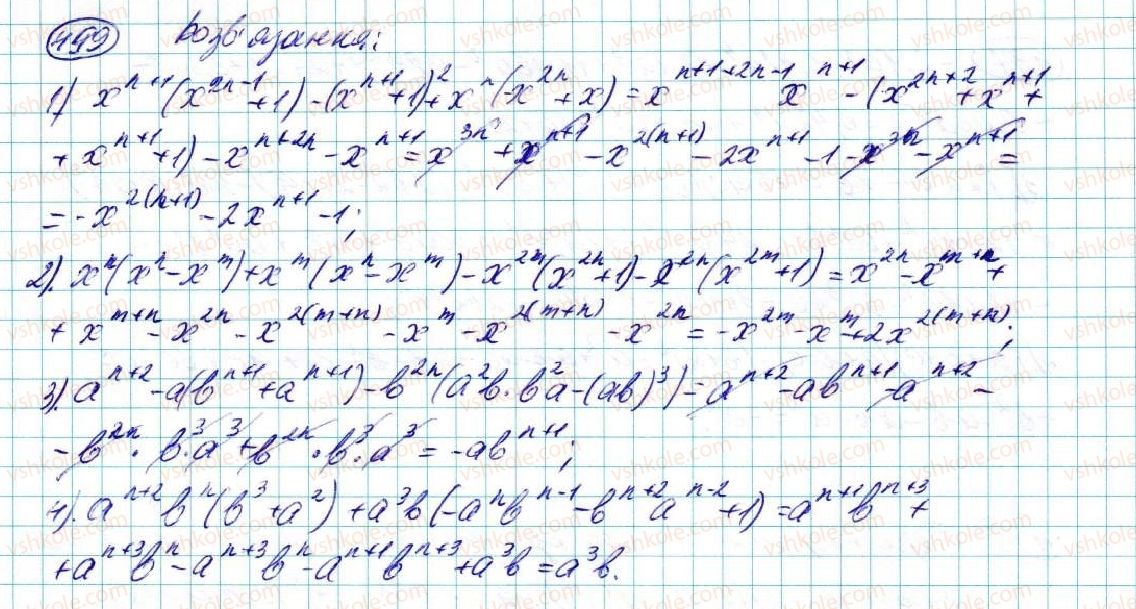 499 Розв'язання:
1) x^{n+1}(x^{2n-1}+1)-(x^{n+1}+1)^2+x^n(-x^{2n}+x)=x^{n+1+2n-1} x^{n+1}-(x^{2n+2}+x^{n+1}+
+x^{n+1}+1)-x^{n+2n}-x^{n+1}=x^{3n}+x^{n+1}-x^{2(n+1)}-2x^{n+1}-1-x^{3n}-x^{n+1}=
=-x^{2(n+1)}-2x^{n+1}-1;
2). x^n(x^n-x^m)+x^m(x^n-x^m)-x^{2m}(x^{2n}+1)-x^{2n}(x^{2m}+1)=x^{2n}-x^{m+n}+
+x^{m+n}-x^{2n}-x^{2(m+n)}-x^m-x^{2(m+n)}-x^{2n}=-x^{2m}-x^m+2x^{2(m+n)};
3). a^{n+2}-a(b^{n+1}+a^{n+1})-b^{2n}(a^2b·b^2a-(ab)^3)=a^{n+2}-ab^{n+1}-a^{n+2}-
-b^{2n}·b^3·a^3+b^{2n}·b^3·a^3=-ab^{n+1};
4). a^{n+2}b^n(b^3+a^2)+a^3b(-a^nb^{n-1}-b^{n+2}a^{n-2}+1)=a^{n+1}b^{n+3}+
+a^{n+3}b^n-a^{n+3}b^n-a^{n+1}b^{n+3}+a^3b=a^3b.
vshkole.com